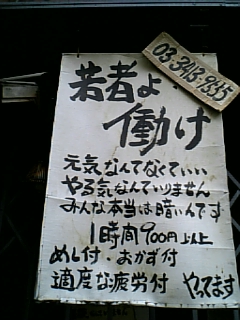 03-3413-9335
若者よ
働け
元気なんてなくていい
やる気なんていりません
みんな本当は暗いんです
1時間900円以上
めし付・おかず付
適度な疲労付 やってます